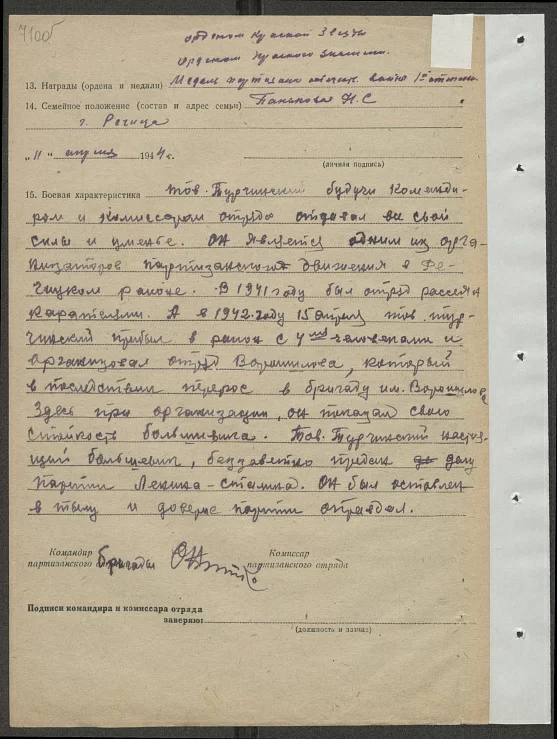 орденом Красной Звезды
орденом Красного знамени.
13. Награды (ордена и медали) Медаль партизана отечеств. войны 1ой степени
14. Семейное положение (состав и адрес семьи) Н. С
г. Речица
„11" апреля 1944 г.
(личная подпись)
15. Боевая характеристика тов. Турчинский будучи команди-
ром и комиссаром отряда отдавал все свои
силы и уменье. Он является одним из орга-
низаторов партизанского движения в Ре-
чицком районе. В 1941 году был отряд рассеян
карателями. А в 1942 году 15 апреля тов. Тур-
чинский прибыл в район с 4мя человеками и
организовал отряд Ворошилова, который
в последствии перерос в бригаду им. Ворошилова
Здесь при организации, он показал свою
стойкость большевика. Тов. Турчинский настоя-
щий большевик, беззаветно предан делу
партии Ленина-Сталина. Он был оставлен
в тылу и доверие партии оправдал.
Командир Комиссар
партизанского бригады партизанского отряда
Подписи командира и комиссара отряда
заверяю:
(должность и звание)